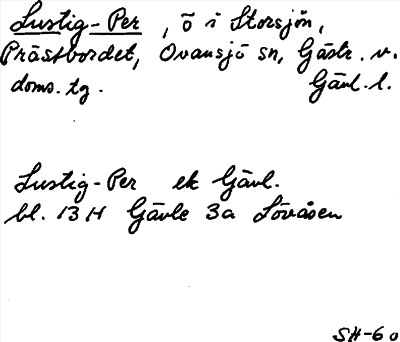 Lustig-Per, ö i Storsjön,
Prästbordet, Ovansjö sn, Gästr. v.
doms. tg. Gävl. l.
Lustig-Per ek Gävl.
bl. 13 H Gävle 3a Lövåsen
SH-60